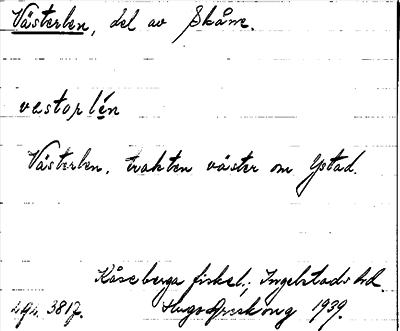 Västerlen, del av Skåne.
västərlén
Västerlen, trakten väster om Ystad.
Kåseberga fiskel., Ingelstads hd.
4g4. 3817. Hugo Areskoug 1939.